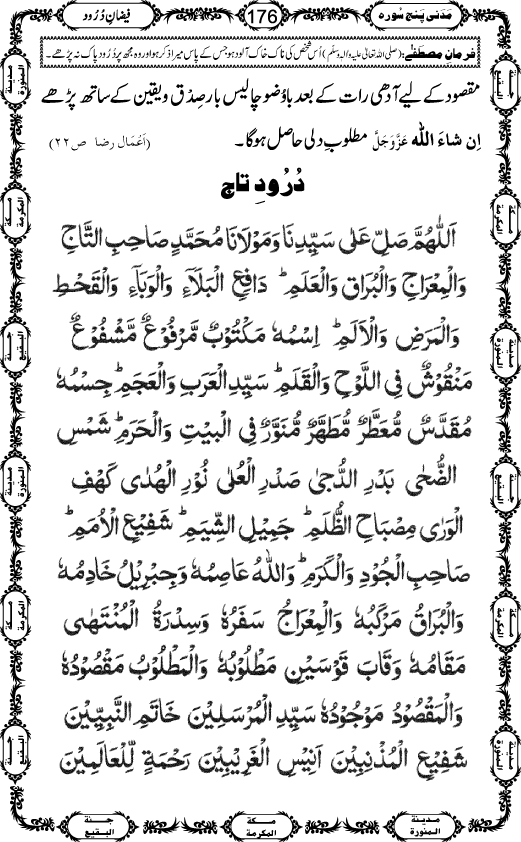 مَدَنی پنج سُورہ
176
فیضانِ دُرُود
فرمانِ مصطفےٰ: (صلی اللہ تعالیٰ علیہ والہ وسلّم) اُس شخص کی ناک خاک آلود ہو جس کے پاس میرا ذکر ہو اور وہ مجھ پر دُرُودِ پاک نہ پڑھے۔
مقصود کے لیے آدھی رات کے بعد باوُضو چالیس بار صِدْق ویقین کے ساتھ پڑھے
اِن شاءَ اللہ عَزَّوَجَلَّ مطلوبِ دلی حاصل ہوگا۔ (اَعْمَال رضا ص۲۲)
دُرُودِ تاج
اَللّٰهُمَّ صَلِّ عَلٰى سَيِّدِنَا وَمَوْلَانَا مُحَمَّدٍ صَاحِبِ التَّاجِ
وَالْمِعْرَاجِ وَالْبُرَاقِ وَالْعَلَمِ ؕ دَافِعِ الْبَلَآءِ وَالْوَبَآءِ وَالْقَحْطِ
وَالْمَرَضِ وَالْاَلَمِ ؕ اِسْمُهٗ مَكْتُوْبٌ مَّرْفُوْعٌ مَّشْفُوْعٌ
مَّنْقُوْشٌ فِى اللَّوْحِ وَالْقَلَمِ ؕ سَيِّدِ الْعَرَبِ وَالْعَجَمِ ؕ جِسْمُهٗ
مُقَدَّسٌ مُّعَطَّرٌ مُّطَهَّرٌ مُّنَوَّرٌ فِى الْبَيْتِ وَالْحَرَمِ ؕ شَمْسِ
الضُّحٰى بَدْرِ الدُّجٰى صَدْرِ الْعُلٰى نُوْرِ الْهُدٰى كَهْفِ
الْوَرٰى مِصْبَاحِ الظُّلَمِ ؕ جَمِيْلِ الشِّيَمِ ؕ شَفِيْعِ الْاُمَمِ ؕ
صَاحِبِ الْجُوْدِ وَالْكَرَمِ ؕ وَاللّٰهُ عَاصِمُهٗ وَجِبْرِيْلُ خَادِمُهٗ
وَالْبُرَاقُ مَرْكَبُهٗ وَالْمِعْرَاجُ سَفَرُهٗ وَسِدْرَةُ الْمُنْتَهٰى
مَقَامُهٗ وَقَابَ قَوْسَيْنِ مَطْلُوْبُهٗ وَالْمَطْلُوْبُ مَقْصُوْدُهٗ
وَالْمَقْصُوْدُ مَوْجُوْدُهٗ سَيِّدِ الْمُرْسَلِيْنَ خَاتَمِ النَّبِيِّيْنَ
شَفِيْعِ الْمُذْنِبِيْنَ اَنِيْسِ الْغَرِيْبِيْنَ رَحْمَةٍ لِّلْعَالَمِيْنَ
مدينة المنورة
مكة المكرمة
جنة البقيع